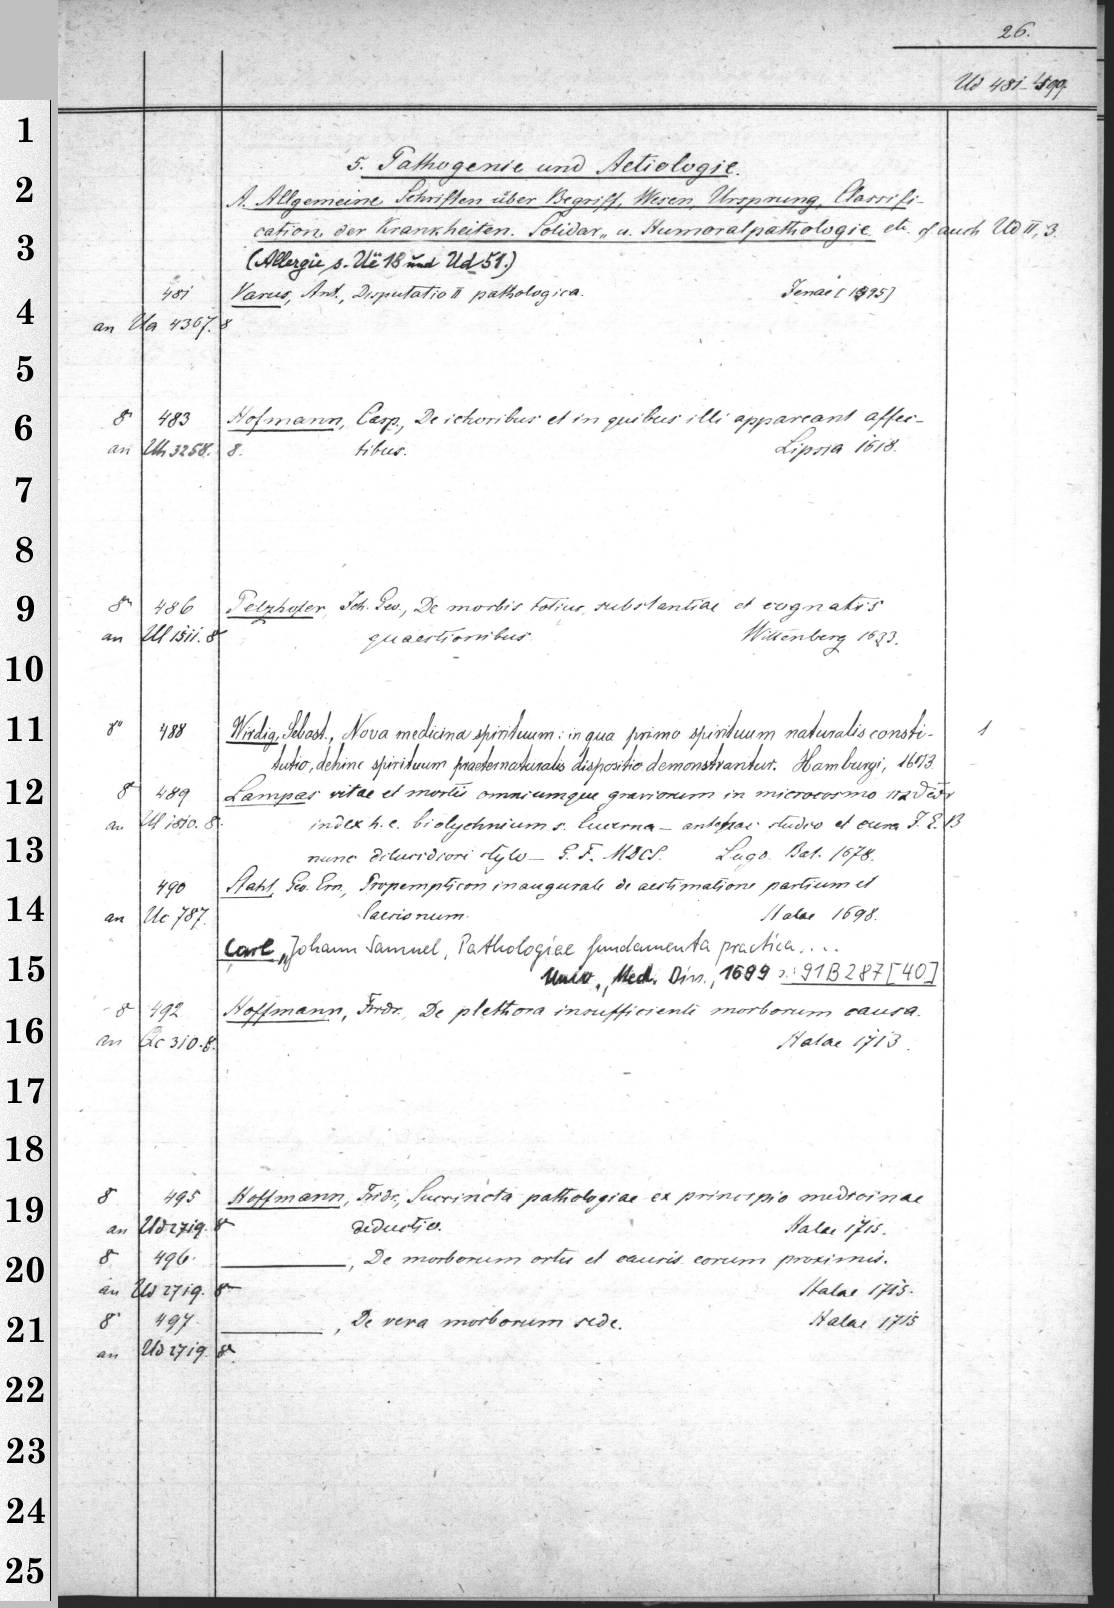 26.
Ud 481-499
5. Pathogenie und Aetiologie.
A. Allgemeine Schriften über Begriff, Wesen, Ursprung, Classifi-
cation, der Krankheiten. Solidar- u. Humoralpathologie etc. cf auch Ud II, 3.
(Allergie s. Ue 18 und Ud 51.)
481 Varus, Ant., Disputatio II pathologica. Jenae [1595]
an Ua 4367. 8
8° 483 Hofmann, Casp., De ichoribus et in quibus illi appareant affec-
an Uh 3258. 8. tibus. Lipsia 1618.
8° 486 Pelzhofer, Joh. Geo., De morbis totius substantiae et cognatis
an Ul 1511. 8° quaestionibus. Wittenberg 1633.
8° 488 Wirdig, Sebast., Nova medicina spirituum: in qua primo spirituum naturalis consti- 1
tutio, dehinc spirituum praeternaturalis dispositio demonstrantur. Hamburgi, 1673
8° 489 Lampas vitae et mortis omniumque graviorum in microcosmo παθῶν
an Ul 1810. 8. index h. e. biolychnium s. lucerna — antehac studio et cura J. E. B
nunc dilucidiori stylo — G. F. MDCS. Lugd. Bat. 1678.
490 Stahl, Geo. Ern., Propempticon inaugurale de aestimatione partium et
an Uc 787. laesionum. Halae 1698.
Carl, Johann Samuel, Pathologiae fundamenta practica....
Univ., Med. Diss., 1699 s.: 91 B 287 [40]
8 492 Hoffmann, Frdr., De plethora insufficienti morborum causa.
an Qc 310. 8. Halae 1713.
8 495 Hoffmann, Fridr., Succincta pathologiae ex principio medicinae
an Ud 2719. 8° deductio. Halae 1715.
8 496. ———, De morborum ortu et causis eorum proximis.
an Ud 2719. 8° Halae 1715.
8° 497. ———, De vera morborum sede. Halae 1715
an Ud 2719. 8°.
1
2
3
4
5
6
7
8
9
10
11
12
13
14
15
16
17
18
19
20
21
22
23
24
25